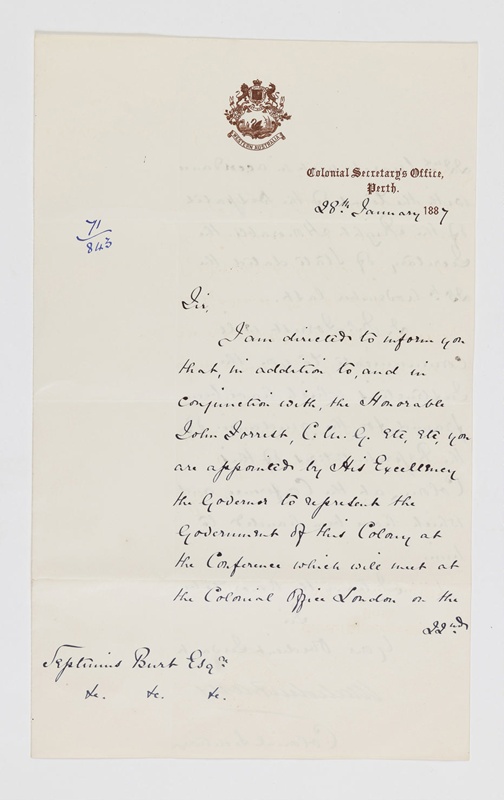 WESTERN AUSTRALIA
Colonial Secretary's Office,
Perth.
28th January 1887
71
843
Sir,
I am directed to inform you
that, in addition to, and in
conjunction with, the Honorable
John Forrest, C.M.G. etc, etc, you
are appointed by His Excellency
the Governor to represent the
Government of this Colony at
the Conference which will meet at
the Colonial Office London on the
22nd
Septimus Burt Esqre
&c. &c. &c.